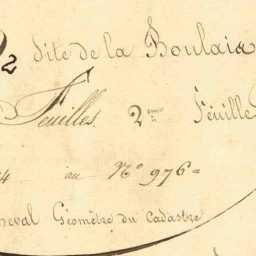 2 dite de la Boulaie
Feuilles. 2me Feuille
4 au No 976=
cheval Géomètre du Cadastre